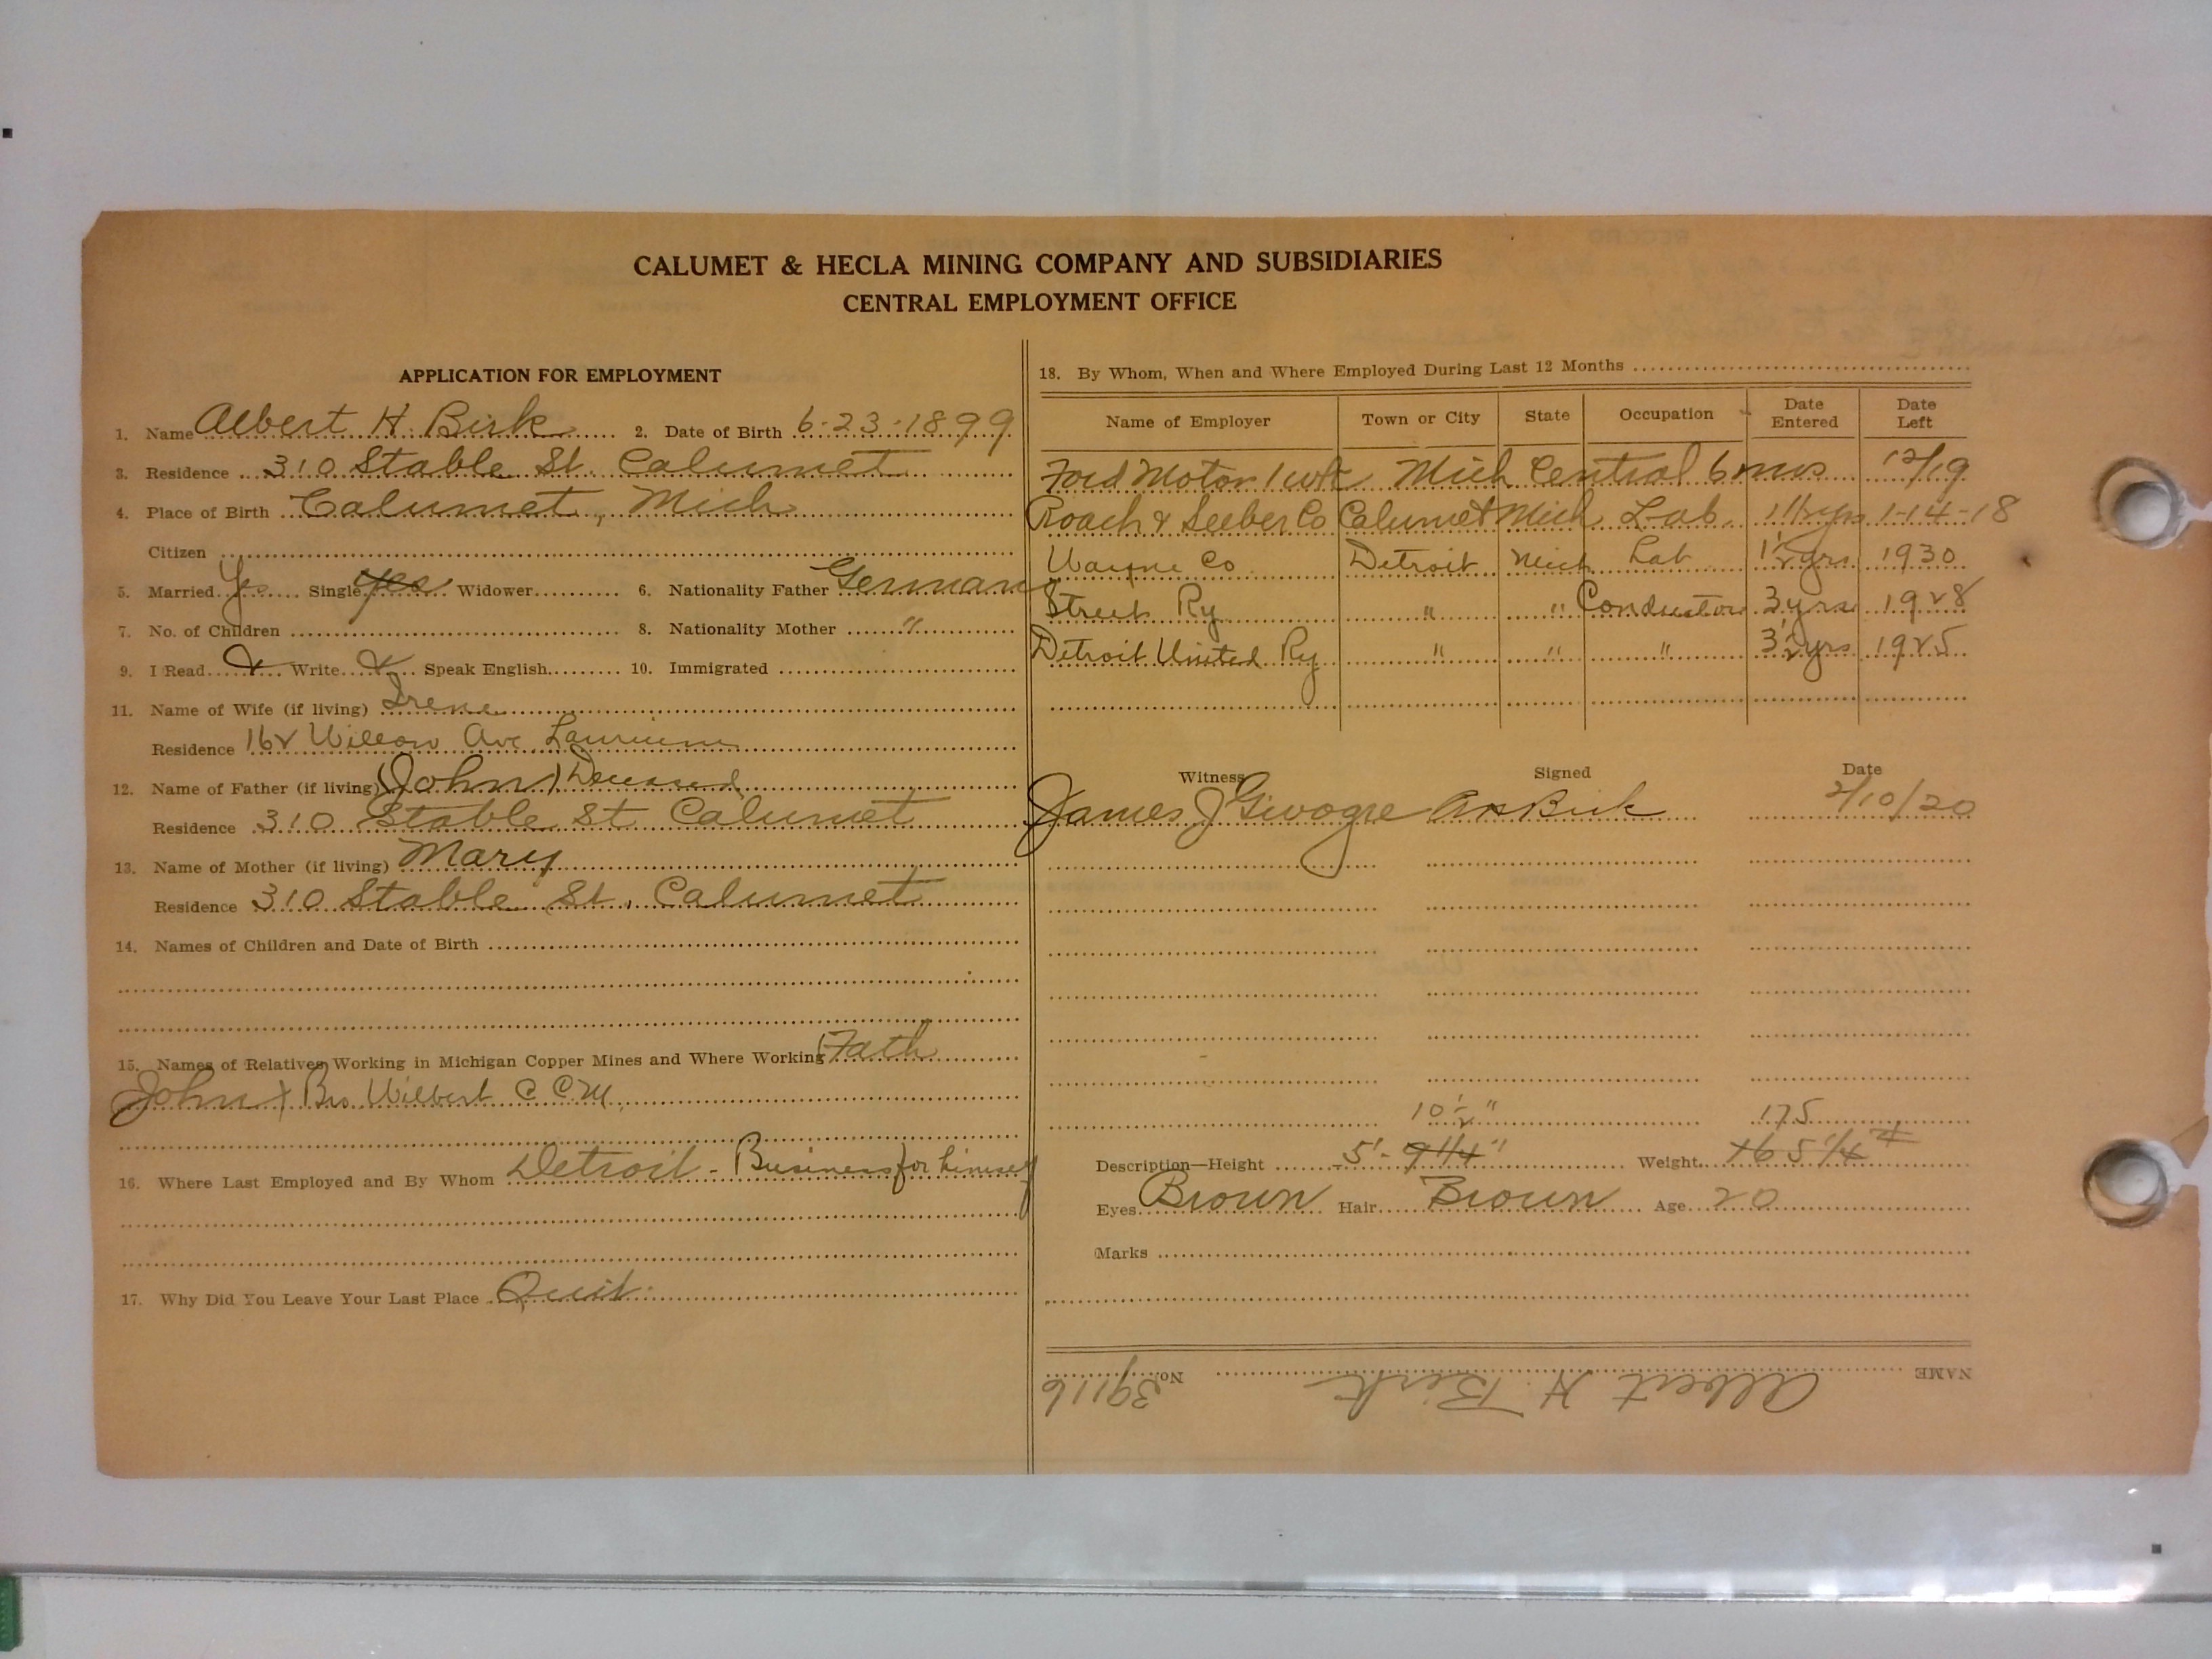 CALUMET & HECLA MINING COMPANY AND SUBSIDIARIES
CENTRAL EMPLOYMENT OFFICE
APPLICATION FOR EMPLOYMENT
1. Name Albert H. Birk 2. Date of Birth 6-23-1899
3. Residence 310 Stable St. Calumet
4. Place of Birth Calumet, Mich
Citizen
5. Married Yes Single Yes Widower 6. Nationality Father German
7. No. of Children 8. Nationality Mother "
9. I Read Write Speak English 10. Immigrated
11. Name of Wife (if living) Irene
Residence 162 Willow Ave Laurium
12. Name of Father (if living) (John) Deceased
Residence 310 Stable St Calumet
13. Name of Mother (if living) Mary
Residence 310 Stable St. Calumet
14. Names of Children and Date of Birth
15. Names of Relatives Working in Michigan Copper Mines and Where Working (Fath
John) Bro Wilbert C C M
16. Where Last Employed and By Whom Detroit - Business for himself
17. Why Did You Leave Your Last Place Quit
18. By Whom, When and Where Employed During Last 12 Months
Name of Employer Town or City State Occupation Date Entered Date Left
Ford Motor 1 wk Mich Central 6 mos 12/19
Roach & Seeber Co Calumet Mich Lab. 1-14-18
Wayne Co Detroit Mich Lab 1 1/2 yrs 1930
Street Ry " " Conductor 3 yrs 1928
Detroit United Ry " " " 3 1/2 yrs 1925
Witness Signed Date
James J Givogre AH Birk 2/10/20
10 1/2" 175
Description—Height 5'- 9 1/4" Weight 165 1/4 #
Eyes Brown Hair Brown Age 20
Marks
NAME Albert H. Birk No. 39116